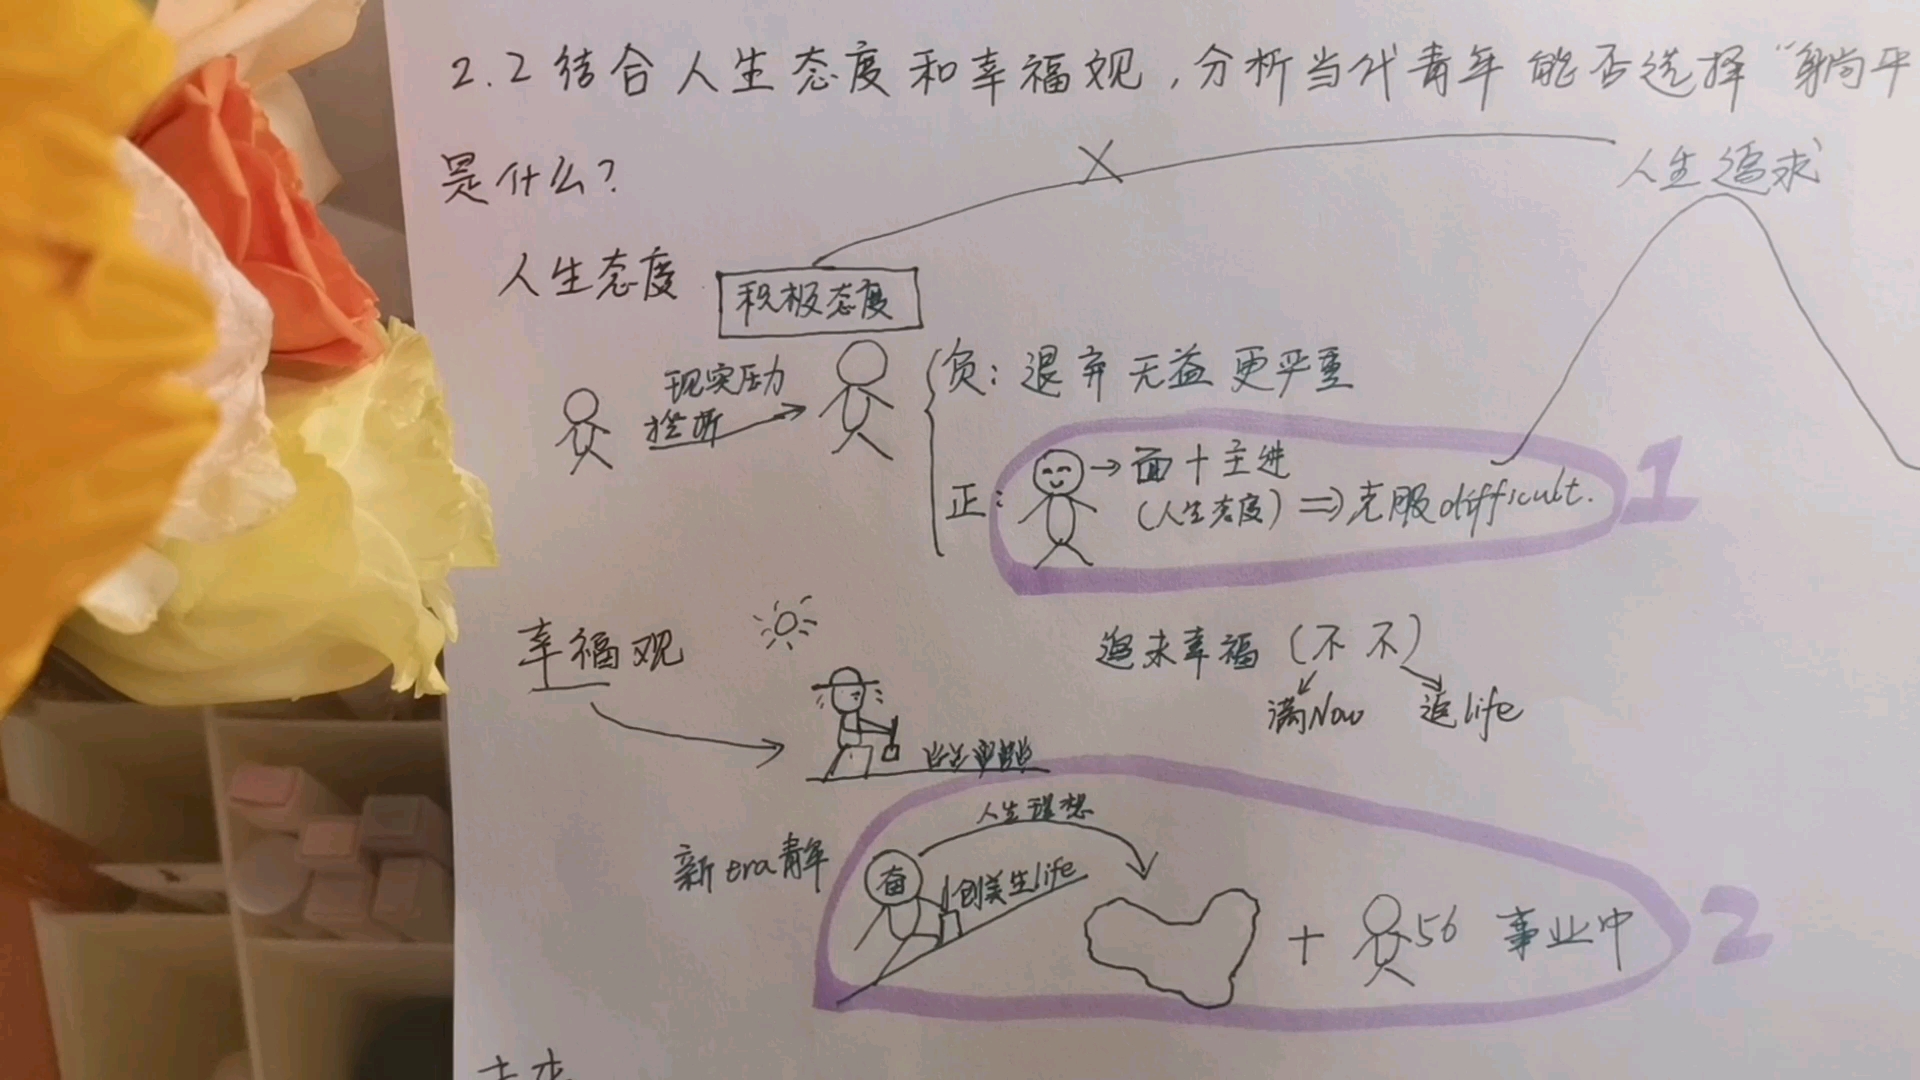 2.2 结合人生态度和幸福观,分析当代青年能否选择“躺平
是什么?
人生追求
人生态度
积极态度
现实压力
挫折
负:退弃 无益 更严重
正:
面+主进
(人生态度)⇒克服difficult.
1
幸福观
追求幸福(不 不)
满Now 追life
人生理想
新era青年
奋
创美生life
+ 56 事业中
2